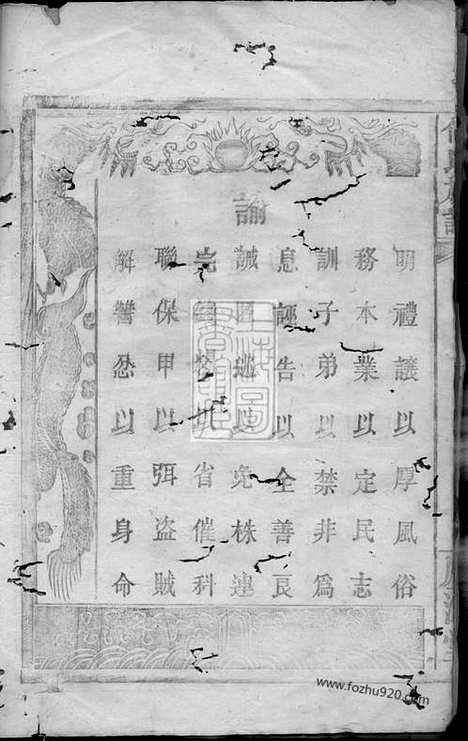 諭
明禮讓以厚風俗
務本業以定民志
訓子弟以禁非爲
息誣告以全善良
誡匿逃以免株連
完錢糧以省催科
聯保甲以弭盜賊
解讐忿以重身命
www.fozhu920.com